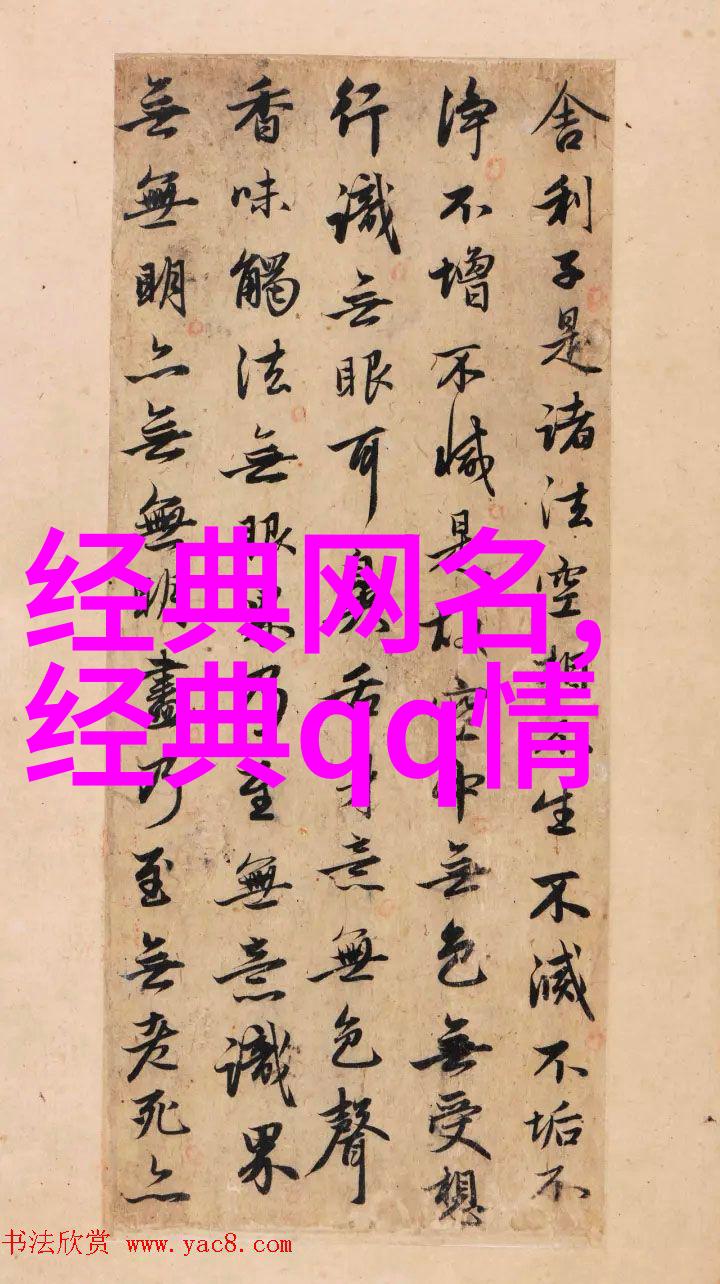 舍利子是諸法空相不生不滅不垢不
淨不增不減是故空中無色無受想
行識無眼耳鼻舌身意無色聲
香味觸法無眼界乃至無意識界
無無明亦無無明盡乃至無老死亦
经典网名,
经典qq情
书法欣赏 www.yac8.com